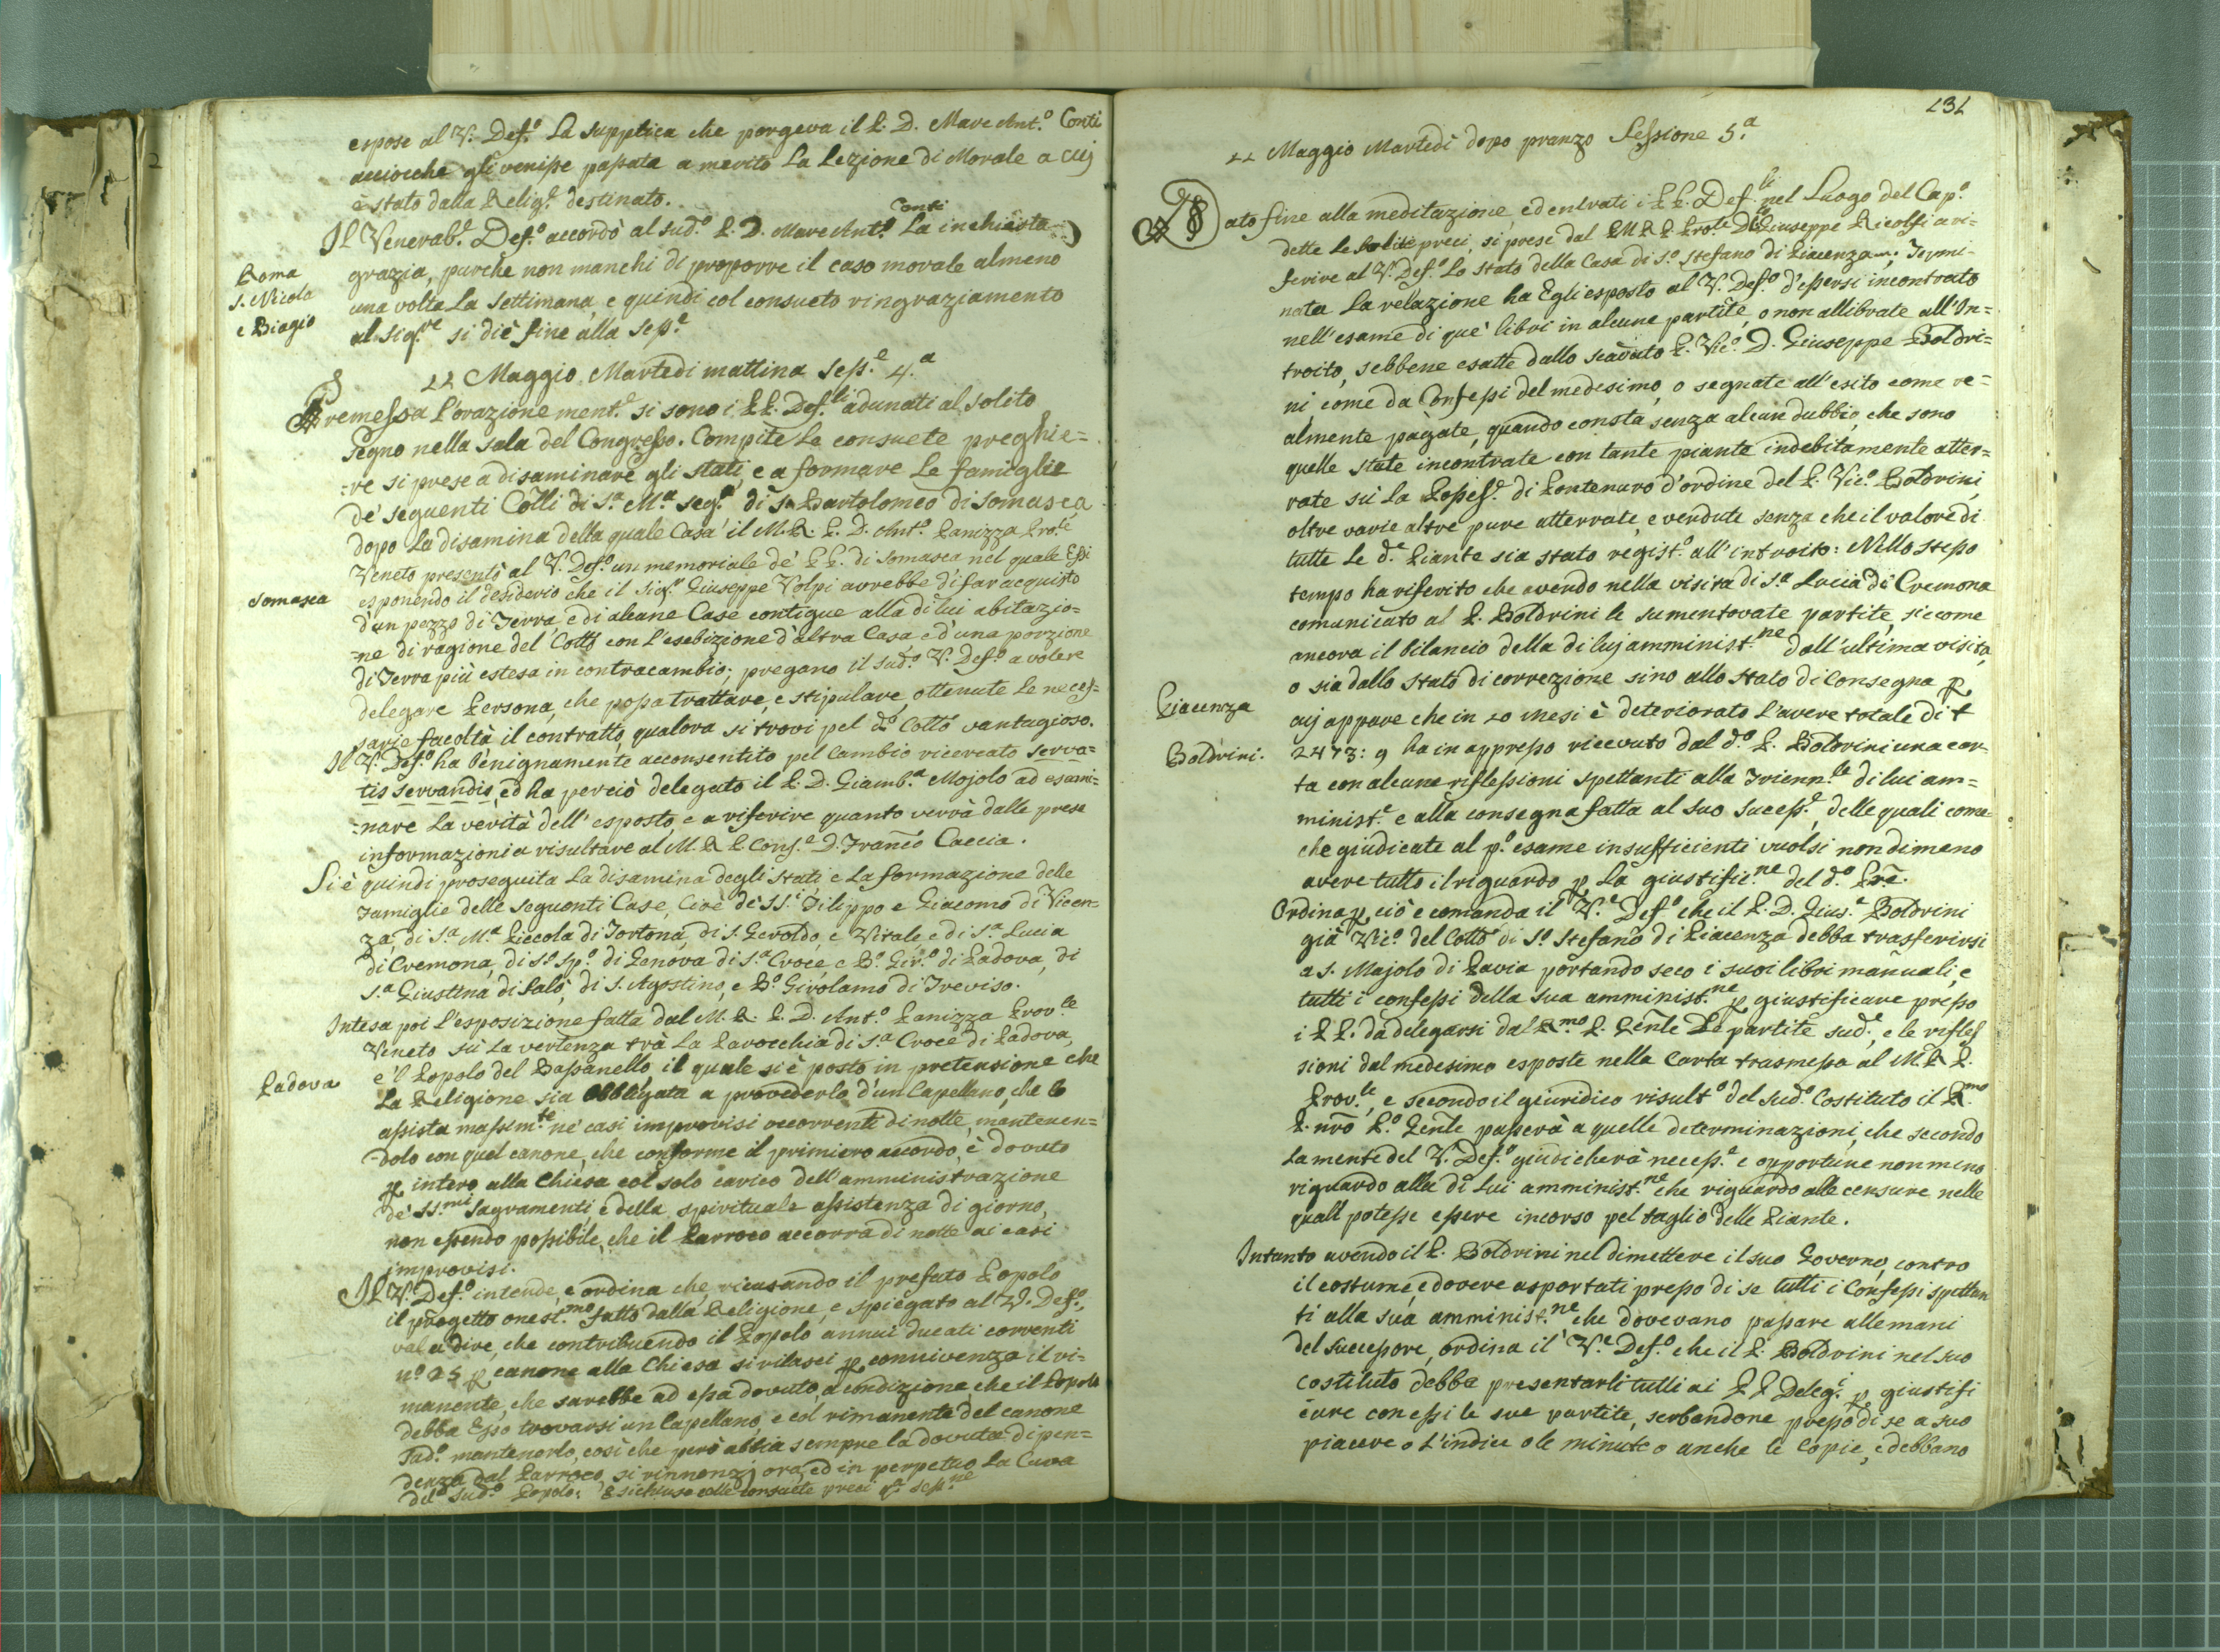 espose al V. Def.º la supplica che porgeva il P. D. Marc Ant.º Conti
acciocche gli venisse passata a merito la Lezione di Morale a cuj
è stato dalla Relig.e destinato.
Il Venerab.e Def.º accordò al sud.º P. D. Marc Ant.º Conti la inchiesta
grazia, purche non manchi di proporre il caso morale almeno
Roma
S. Nicola
e Biagio
una volta la settimana, e quindi col consueto ringraziamento
al Sig.re si diè fine alla Sess.e
22 Maggio Martedi mattina Sess.e 4.a
Premessa l'orazione ment.e si sono i PP. Def.li adunati al solito
segno nella sala del Congresso. Compite le consuete preghie=
=re si prese a disaminare gli stati, e a formare le famiglie
de' seguenti Colli di S.a M.a Seg.a di S. Bartolomeo di Somasca
dopo la disamina della quale Casa il M. R. P. D. Ant.º Panizza Pro.le
Veneto presentò al V. Def.º un memoriale de' PP. di Somasca nel quale Essi
Somasca
esponendo il desiderio che il Sig.r Giuseppe Volpi avrebbe di far acquisto
d'un pezzo di Terra, e di alcune Case contigue alla di lui abitazio=
=ne di ragione del Collo con l'esebizione d'altra Casa, e d'una porzione
di Terra più estesa in contracambio; pregano il sud.º V. Def.º a volere
delegare Persona, che possa trattare, e stipulare, ottenute le neces=
sarie facoltà il contratto, qualora si trovi pel d.º Collo vantagioso.
Il V. Def.º ha benignamente acconsentito pel cambio ricercato serva=
tis servandis, ed ha perciò delegato il P. D. Giamb.a Mojolo ad esami=
=nare la verità dell' esposto, e a riferire quanto verrà dalle prese
informazioni a risultare al M. R. P. Cons.e D. Franc.o Caccia.
Si è quindi proseguita la disamina degli stati e la formazione delle
Famiglie delle seguenti Case, cioè de' SS.i Filippo e Giacomo di Vicen=
za, di S.a M.a Piccola di Tortona, di S. Geroldo, e Vitale e di S.a Lucia
di Cremona, di S.º Sp.º di Genova di S.a Croce, e B.º Gir.º di Padova, di
S.a Giustina di Salò, di S. Agostino, e B.º Girolamo di Treviso.
Intesa poi l'esposizione fatta dal M. R. P. D. Ant.º Panizza Prov.le
Veneto sù la vertenza trà la Parocchia di S.a Croce di Padova,
e 'l Popolo del Bassanello, il quale si è posto in pretensione che
Padova
la Religione sia obbligata a provederlo d'un Capellano, che lo
assista massim.te ne' casi improvisi occorrenti di notte, mantenen=
=dolo con quel canone, che conforme il primiero accordo, è dovuto
p intero alla Chiesa col solo carico dell' amministrazione
de' SS.mi Sagramenti e della spirituale assistenza di giorno,
non essendo possibile, che il Parroco accorra di notte ai casi
improvisi.
Il V. Def.º intende, e ordina che, ricusando il prefato Popolo
il progetto onest.mo fatto dalla Religione, e spiegato al V. Def.º,
val a dire, che contribuendo il Popolo annui ducati correnti
nº 25 p canone alla Chiesa si rilasci p connivenza il ri=
manente, che sarebbe ad essa dovuto, a condizione, che il Popolo
debba Esso trovarsi un Capellano, e col rimanente del canone
Fad.º mantenerlo, così che però abbia sempre la dovuta dipen=
denza dal Parroco, si rinnonzj ora, ed in perpetuo la Cura
del sud.º Popolo: E si chiuse colle consuete preci q.a Sess.ne
131
22 Maggio Martedì dopo pranzo Sessione 5.a
Dato fine alla meditazione, ed entrati i PP. Def.li nel Luogo del Cap.º
dette le solite preci, si prese dal P.M.R.P. Pro.le D. Giuseppe Ricolfi a ri=
ferire al V. Def.º lo stato della Casa di S.º Stefano di Piacenza. Termi=
nata la relazione ha Egli esposto al V. Def.º d'essersi incontrato
nell'esame di que' libri in alcune partite, o non allibrate all' In=
troito, sebbene esatte dallo scaduto P. Vic.º D. Giuseppe Boldri=
ni, come da Confessi del medesimo, o segnate all' esito come re=
almente pagate, quando consta senza alcun dubbio, che sono
quelle state incontrate con tante piante indebitamente atter=
rate sù la Possess.e di Pontenuro d'ordine del P. Vic.º Boldrini,
oltre varie altre pure atterrate, e vendute senza che il valore di
tutte le d.e Piante sia stato regist.º all' introito: Nello stesso
tempo ha riferito che avendo nella visita di S.a Lucia di Cremona
comunicato al P. Boldrini le sumentovate partite, siccome
ancora il bilancio della di luj amminist.ne dall' ultima visita,
o sia dallo stato di correzione sino allo stato di consegna p
Piacenza
cuj appare che in 20 mesi è deteriorato l'avere totale di t
Boldrini.
2473: 9 ha in appresso ricevuto dal d.º P. Boldrini una car=
ta con alcune riflessioni spettanti alla Trienn.le di lui am=
minist.e e alla consegna fatta al suo sucess.e, delle quali come=
che giudicate al p.º esame insufficienti vuolsi nondimeno
avere tutto il riguardo p la giustific.ne del d.º Pre.
Ordina p ciò e comanda il V.e Def.º che il P. D. Gius.e Boldrini
già Vic.º del Collo di S.º Stefano di Piacenza debba trasferirsi
a S. Majolo di Pavia portando seco i suoi libri manuali, e
tutti i confessi della sua amminist.ne p giustificare presso
i PP. da delegarsi dal R.mo P. Gen̄le le partite sud.e, e le rifles
sioni dal medesimo esposte nella Carta trasmessa al M. R. P.
Prov.le, e secondo il giuridico risult.º del sud.º Costituto il R.mo
P. nr̄o P.º Gen̄le passerà a quelle determinazioni, che secondo
la mente del V. Def.º giudicherà necess.e e opportune non meno
riguardo alla di lui amminist.ne che riguardo alle censure nelle
quali potesse essere incorso pel taglio delle Piante.
Intanto avendo il P. Boldrini nel dimettere il suo Governo, contro
il costume, e dovere asportati presso di se tutti i Confessi spettan
ti alla sua amminist.ne che dovevano passare alle mani
del successore, ordina il V.e Def.º che il P. Boldrini nel suo
costituto debba presentarli tutti ai PP Deleg.i p giustifi
care con essi le sue partite, serbandone presso di se a suo
piacere o l'indice o le minute o anche le Copie, e debbano